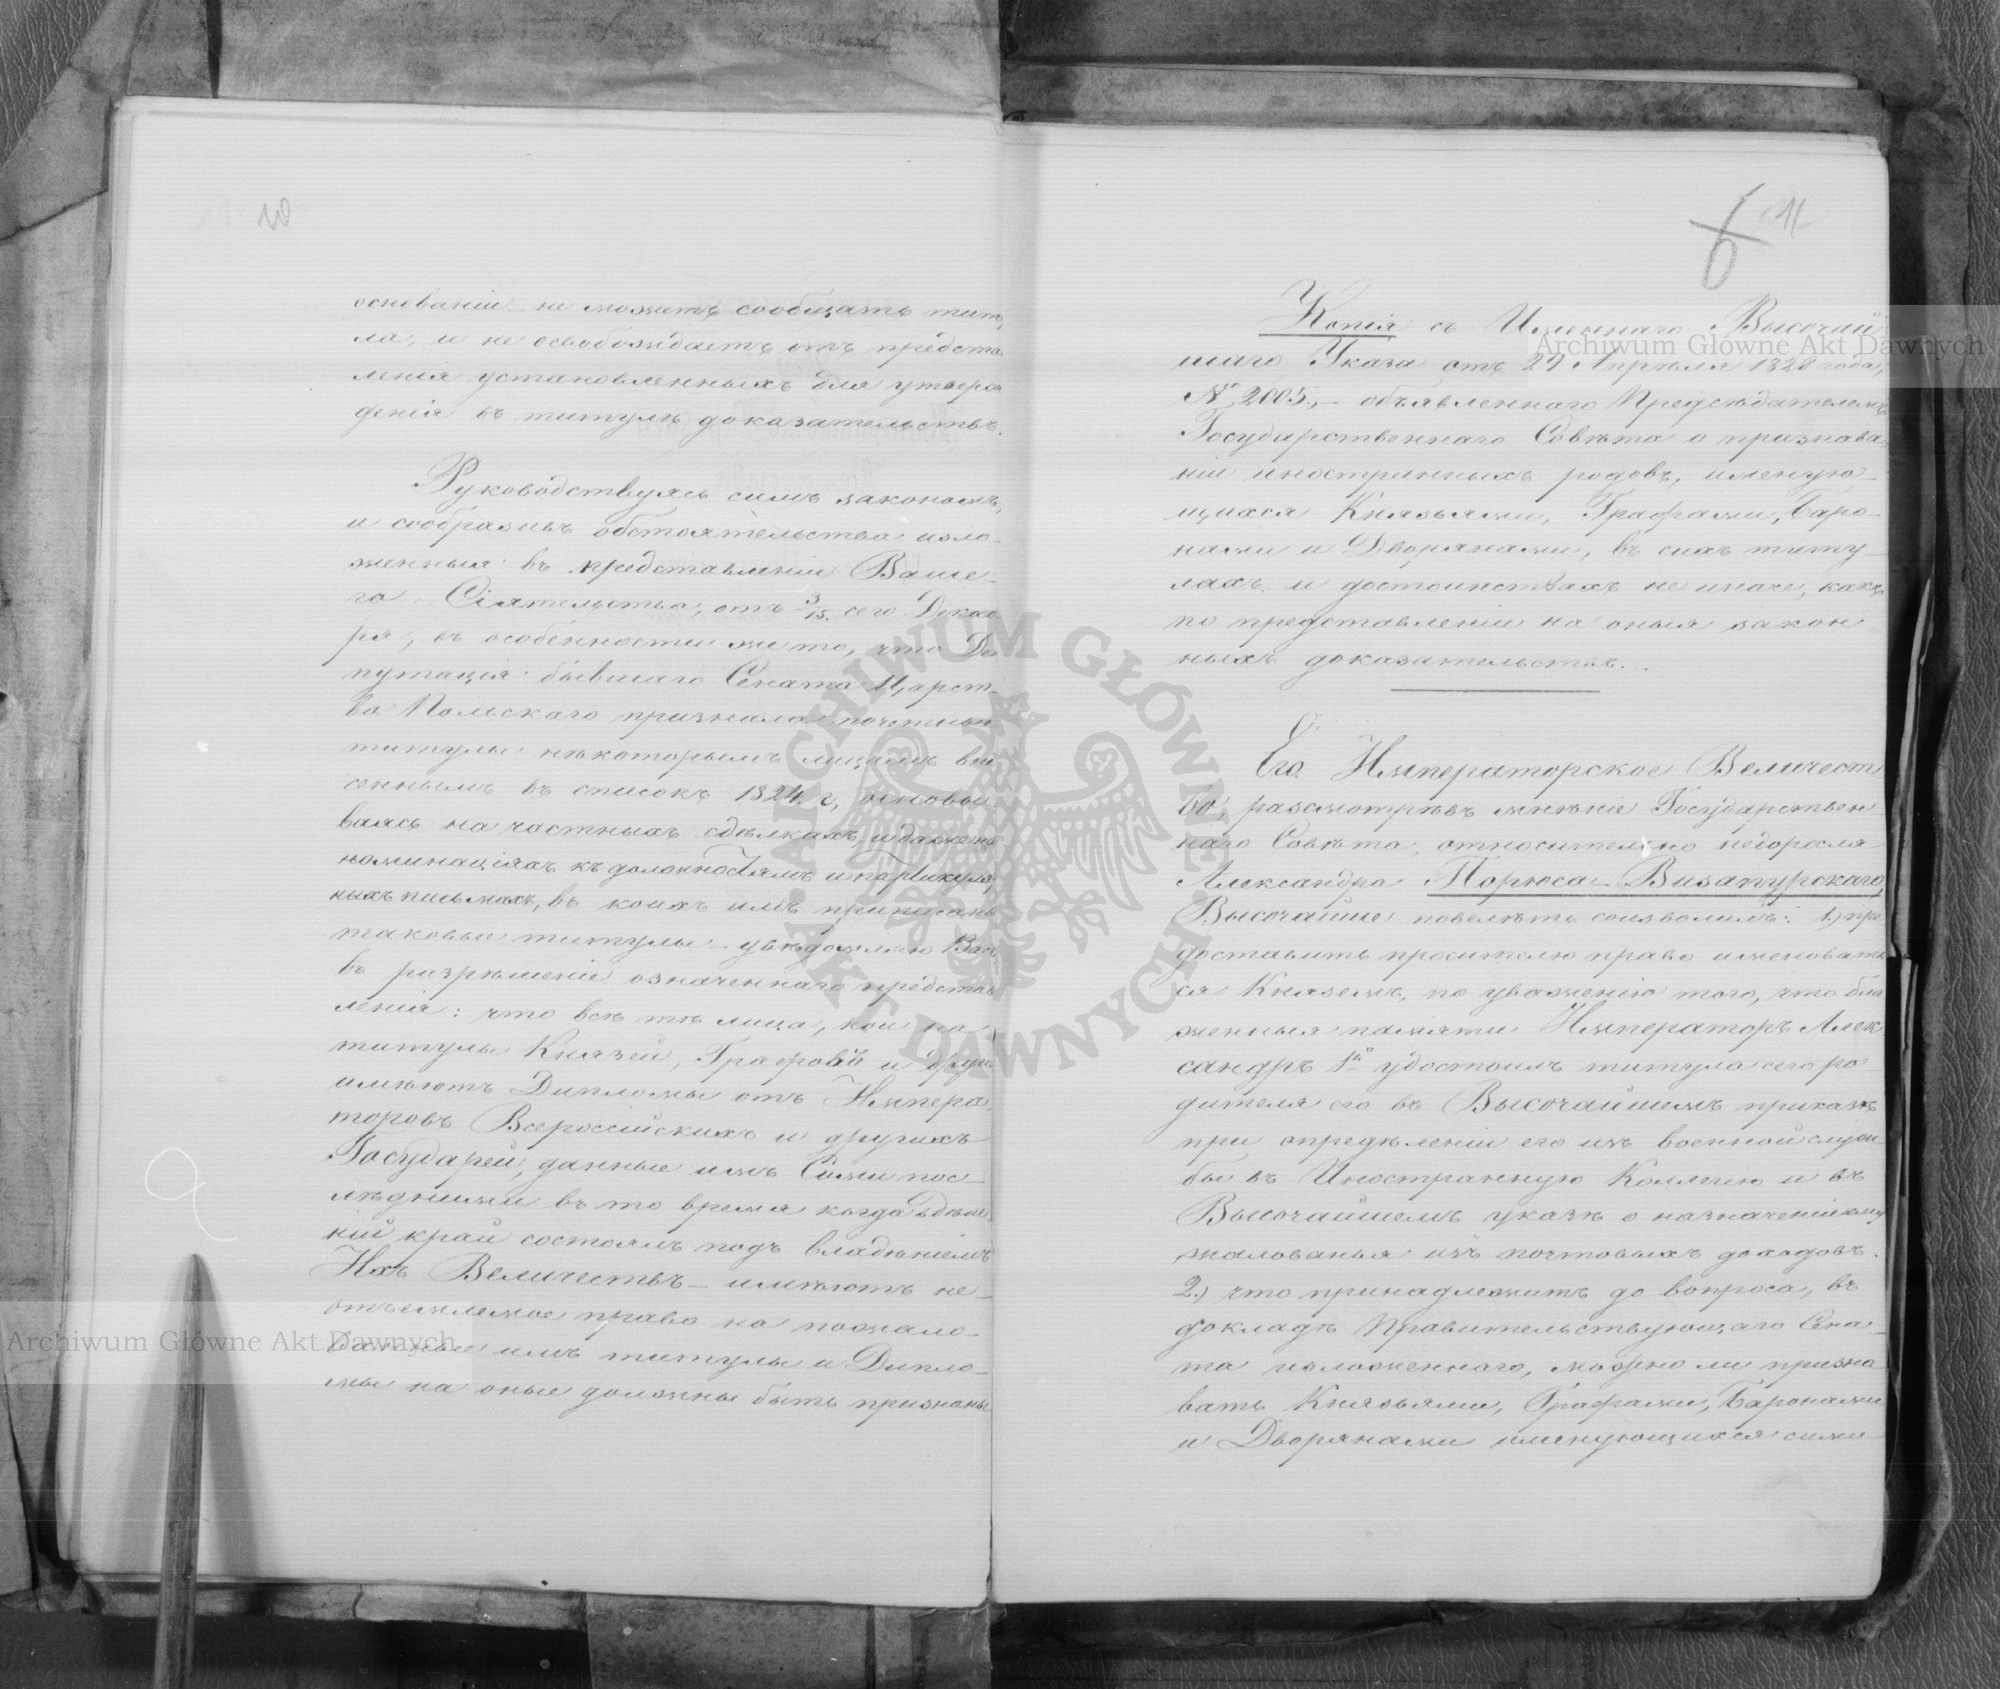 10
основаніи не можетъ сообщать тит
ла, и не освобождаетъ отъ предста
ленія установленныхъ для утверж
денія въ титулѣ доказательствъ.
Руководствуясь симъ закономъ,
и сообразивъ обстоятельства изло-
женныя въ представленіи Ваше-
го Сіятельства, отъ 3/15. сего Декаб
ря, въ особенности же то, что Де
путація бывшаго Сената Царст-
ва Польскаго признала почетные
титулы нѣкоторымъ лицамъ вне
сеннымъ въ списокъ 1824 г, основы
ваясь на частныхъ сдѣлкахъ, и даже на
номинаціяхъ къ должностямъ и партикуляр
ныхъ письмахъ, въ коихъ имъ приписаны
таковые титулы – увѣдомляю Васъ,
въ разрѣшеніе означеннаго представ
ленія: что всѣ тѣ лица, кои на
титулы Князей, Графовъ и други
имѣютъ Дипломы отъ Импера
торовъ Всероссійскихъ и другихъ
Государей, данные имъ Сими пос-
лѣдними въ то время когда здѣш
ній край состоялъ подъ владѣніемъ
Ихъ Величествъ – имѣютъ не-
отъемлемое право на пожало-
ванные имъ титулы и Дипло-
мы на оные должны быть признаны
6 11
Копія съ Имен­наго Высочай
шаго Указа отъ 27 Апрѣля 1828 года,
№ 2005, – объявленнаго Предсѣдателемъ
Государственнаго Совѣта о признава
ніи иностранныхъ родовъ, именую-
щихся Князьями, Графами, Баро-
нами и Дворянами, въ сихъ титу-
лахъ и достоинствахъ не иначе, какъ
по представленіи на оныя закон
ныхъ доказательствъ.
Его Императорское Величест
во, разсмотрѣвъ мнѣніе Государствен
наго Совѣта, относительно недоросля
Александра Порюса-Визапурскаго,
Высочайше повелѣть соизволилъ: 1.) пре
доставить просителю право именовать
ся Княземъ, по уваженію того, что бла
женныя памяти Императоръ Алек
сандръ 1й удостоилъ титула сего ро
дителя его въ Высочайшемъ приказѣ
при опредѣленіи его изъ военной служ-
бы въ Иностранную Коллегію и въ
Высочайшемъ указѣ о назначеніи ему
жалованья изъ почтовыхъ доходовъ.
2.) что принадлежитъ до вопроса, въ
докладѣ Правительствующаго Сена-
та изложеннаго, можно ли призна
вать Князьями, Графами, Баронами
и Дворянами именующихся сими
Archiwum Główne Akt Dawnych
Archiwum Główne Akt Dawnych
ARCHIWUM GŁÓWNE AKT DAWNYCH